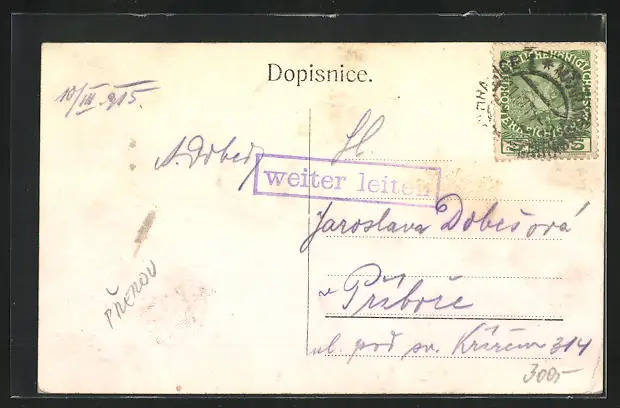 Dopisnice.
10/III 915.
A. Dobeš
Sl.
weiter leiten
Jaroslava Dobešová
v Příboře
ul. pod sv. Křížem 314
PŘEROV
300,-
5